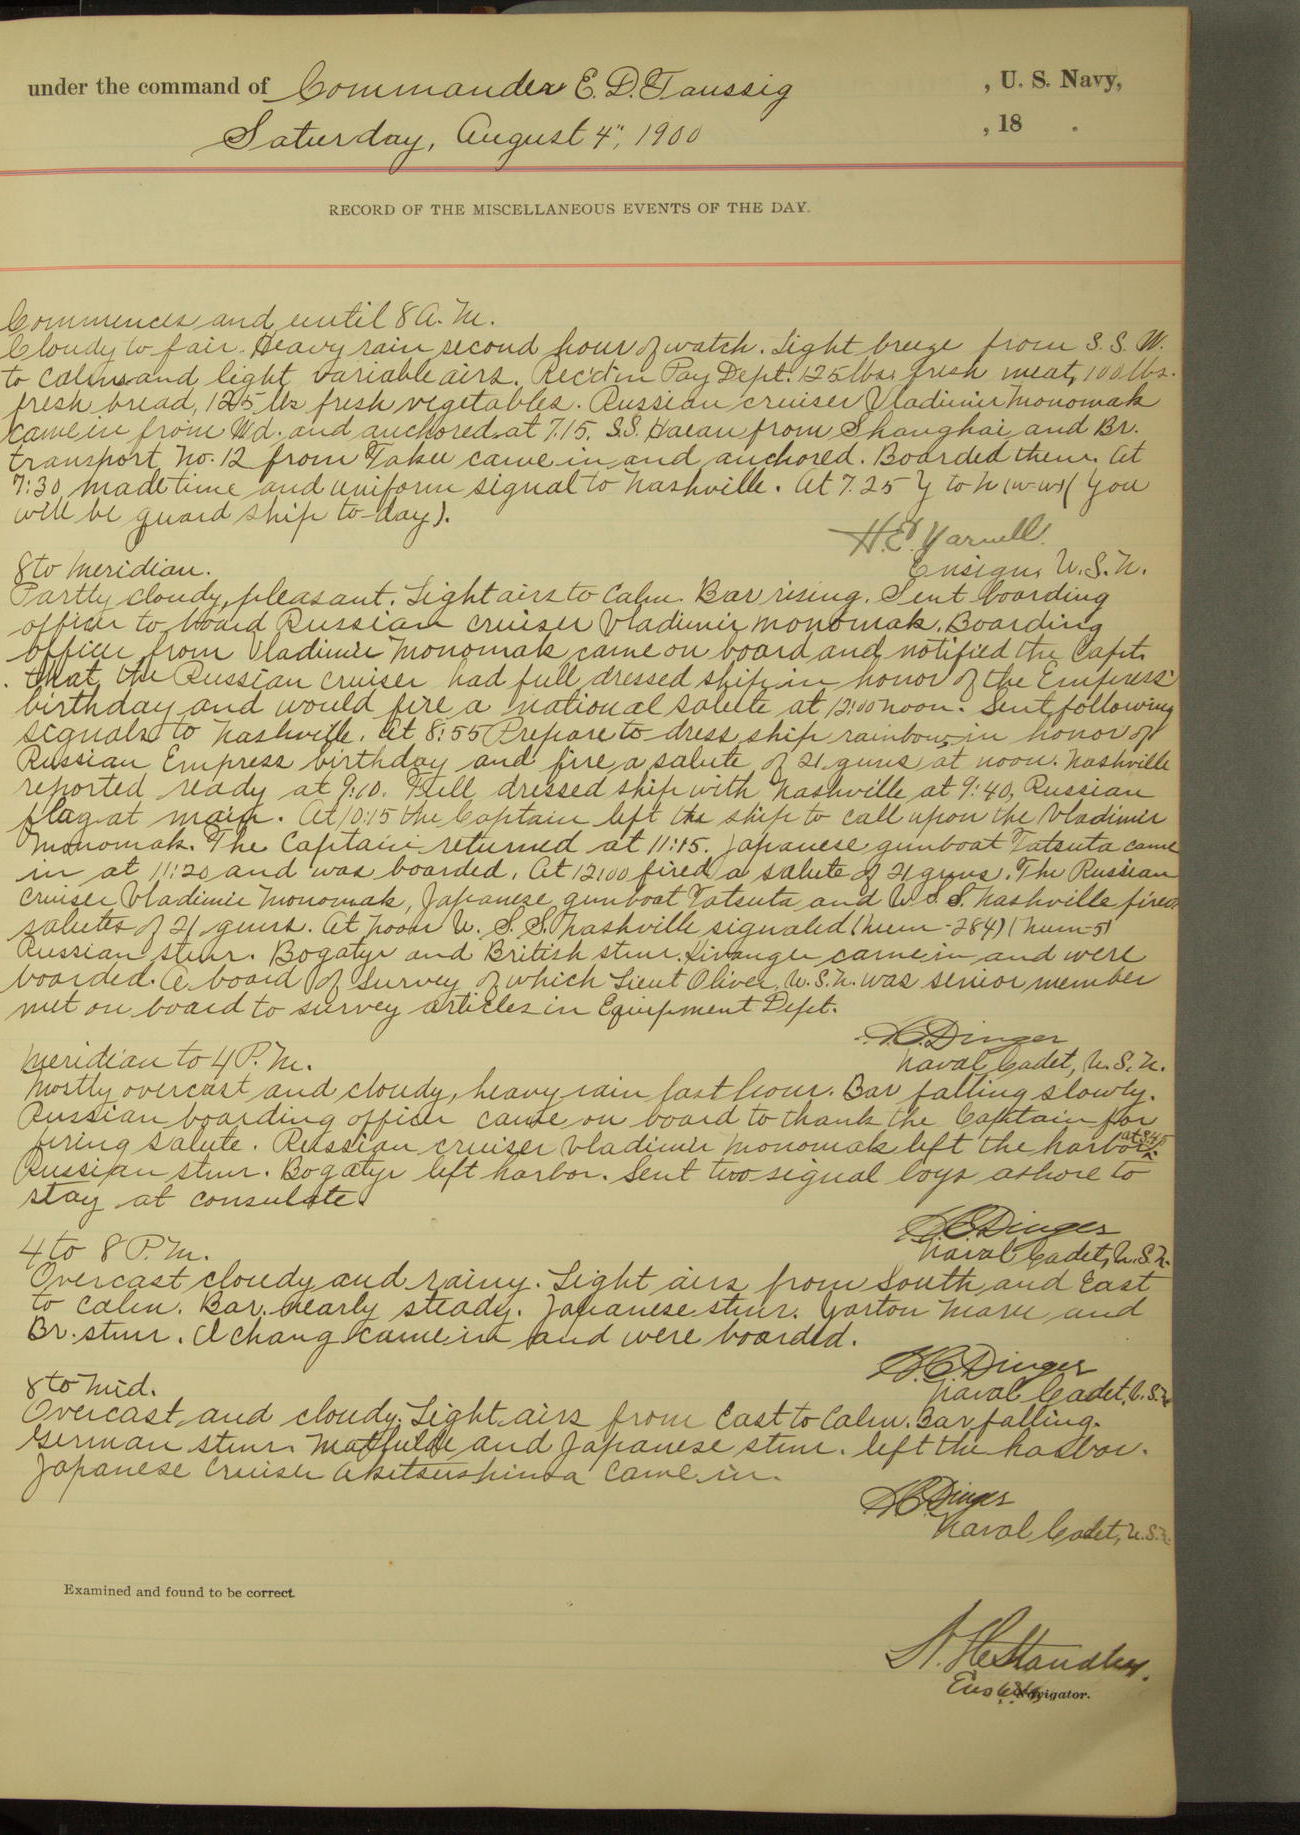 under the command of Commander E. D. Taussig , U. S. Navy,
Saturday, August 4", 1900 , 18 .
RECORD OF THE MISCELLANEOUS EVENTS OF THE DAY.
Commences and until 8 A.M.
Cloudy to fair. Heavy rain second hour of watch. Light breeze from S.S.W.
to calms and light variable airs. Rec'd in Pay Dept. 125 lbs. fresh meat, 100 lbs.
fresh bread, 125 lbs fresh vegetables. Russian cruiser Vladimir Monomak
came in from and anchored at 7.15. S.S. Haean from Shanghai and Br.
transport No. 12 from Taku came in and anchored. Boarded them. At
7:30 made time and uniform signal to Nashville. At 7.25 Y to N (w-w) (You
will be guard ship to-day).
H.E. Yarnell.
Ensign, U.S.N.
8 to Meridian.
Partly cloudy, pleasant. Light airs to calm. Bar rising. Sent boarding
officer to board Russian cruiser Vladimir Monomak. Boarding
officer from Vladimir Monomak came on board and notified the Capt.
that the Russian cruiser had full dressed ship in honor of the Empress'
birthday and would fire a national salute at 12:00 noon. Sent following
signals to Nashville. At 8:55 Prepare to dress ship rainbow, in honor of
Russian Empress birthday and fire a salute of 21 guns at noon. Nashville
reported ready at 9:10. Full dressed ship with Nashville at 9:40, Russian
flag at main. At 10:15 the Captain left the ship to call upon the Vladimir
Monomak. The Captain returned at 11:15. Japanese gunboat Tatsuta came
in at 11:20 and was boarded. At 12:00 fired a salute of 21 guns. The Russian
cruiser Vladimir Monomak, Japanese gunboat Tatsuta and U.S.S. Nashville fired
salutes of 21 guns. At noon U.S.S. Nashville signaled (Num-284) (Num-5)
Russian stmr. Bogatyr and British stmr. came in and were
boarded. A board of survey of which Lieut Oliver, U.S.N. was senior member
met on board to survey articles in Equipment Dept.
H.C. Dinger
Naval Cadet, U.S.N.
Meridian to 4 P.M.
Mostly overcast and cloudy, heavy rain last hour. Bar falling slowly.
Russian boarding officer came on board to thank the Captain for
firing salute. Russian cruiser Vladimir Monomak left the harbor at 3:45.
Russian stmr. Bogatyr left harbor. Sent two signal boys ashore to
stay at consulate.
H.C. Dinger
Naval Cadet, U.S.N.
4 to 8 P.M.
Overcast cloudy and rainy. Light airs from South and East
to calm. Bar. nearly steady. Japanese stmr. Yarton Maru and
Br. stmr. Ichang came in and were boarded.
H.C. Dinger
Naval Cadet, U.S.N.
8 to Mid.
Overcast and cloudy. Light airs from East to Calm. Bar falling.
German stmr. and Japanese stmr. left the harbor.
Japanese Cruiser Akitsushima came in.
H.C. Dinger
Naval Cadet, U.S.N.
Examined and found to be correct.
W. H. Standley.
Ensign
Navigator.